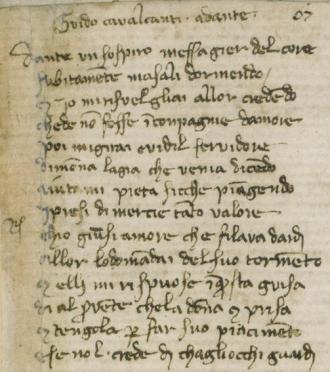 Guido cavalcanti · adante · 67
Dante un sospiro messagier del core
subitamēte masali dormendo
⁊ io mi risvelgliai allor credēdo
chede nō fosse ī conpagnie damore
poi mi girai ⁊ vidil servidore
dimōna lagia che venia dicēdo
aiutami pieta sicche piāgendo
ipresi di mercie tāto valore
chio giūsi amore che filava dardi
allor lodomādai del suo tormēto
⁊ elli mi rispuose ī q̄sta guisa
di al s̄vēte che la dōna ⁊ prisa
⁊ tengola ꝑ far suo piacimēto
⁊ se nol crede di chagliocchi guardi